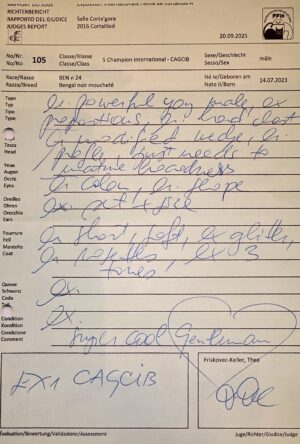 RAPPORT DU JUGE
RICHTERBERICHT
RAPPORT DEL GIUDICE
JUDGES REPORT
Salle Cort'agora
2016 Cortaillod
20.09.2025
No/Nr. 105 Classe/Klasse 5 Champion International - CAGCIB Sexe/Geschlecht mâle
No/No. Classe/Class Sesso/Sex
Race/Rasse BEN n 24 Né le/Geboren am 14.07.2023
Razza/Breed Bengal noir moucheté Nato il/Born
Type
Typ
Tipo
Type
powerful male, ex
proportions, head
in modified wedge,
just needs to
mature
Tête
Yeux
Augen
Occhi
Eyes
Color, shape
Oreilles
Ohren
Orecchie
Ears
ex. set + size
Fourrure
Fell
Mantello
Coat
short, soft, ex glitter,
rosettes, ex 3
tones,
Queue
Schwanz
Coda
Tail
ex.
Condition
Kondition
Condizione
Condition
ex.
Comment
Super cool Gentleman
EX1 CAGCIB
Friskovec-Keller, Thea
Evaluation/Bewertung/Validazione/Assessment
Juge/Richter/Giudice/Judge